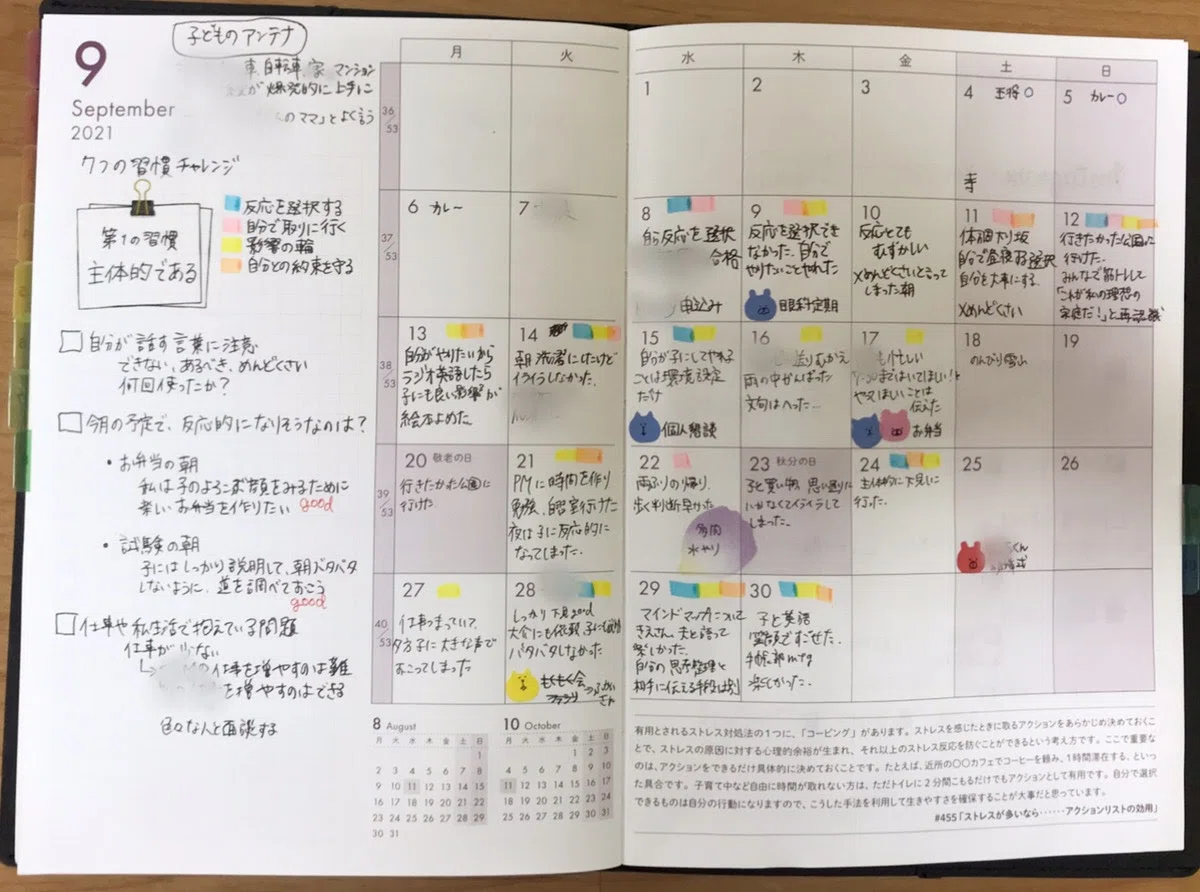 9
September
2021
子どものアンテナ
車、自転車、家、マンション
が爆発的に上手に
のママ」とよく言う
7つの習慣チャレンジ
第1の習慣
主体的である
反応を選択する
自分で取りに行く
影響の輪
自分との約束を守る
自分が話す言葉に注意
できない、あるべき、めんどくさい
何回使ったか?
今月の予定で、反応的になりそうなのは?
・お弁当の朝
私は子のよろこぶ顔をみるために
楽しいお弁当を作りたい good
・試験の朝
子にはしっかり説明して、朝バタバタ
しないように、道を調べておこう
good
仕事や私生活で抱えている問題
仕事が少ない
の仕事を増やすのは難
を増やすのはできる
色々な人と面談する
月 火 水 木 金 土 日
36/53
1
2
3
4 王将○
5 カレー○
37/53
6 カレー
7
8
反応を選択
合格
申込み
9
反応を選択でき
なかった。自分で
やりたいことやれた
眼科定期
10
反応とても
むずかしい
×めんどくさいと言って
しまった朝
11
体調下り坂
自分で昼寝する選択
自分を大事にする。
×めんどくさい
12
行きたかった公園に
行けた。
みんなで筋トレして
「これが私の理想の
家庭だ!」と再認識
38/53
13
自分がやりたいから
ラジオ英語したら
子にも良い影響が
絵本よめた。
14
イライラしなかった。
15
自分が子にしてやれる
ことは環境設定
だけ
個人懇談
16
送りむかえ
雨の中がんばった
文句はへった…
17
も忙しい
まではいてほしい!
やってほしいことは
伝えた
お弁当
18
のんびり
19
39/53
20 敬老の日
行きたかった公園に
行けた。
21
PMに時間を作り
勉強、自習室行けた
夜は子に反応的に
なってしまった。
22
雨ふりの帰り、
歩く判断早かった
多肉
水やり
23 秋分の日
子と買い物 思い通りに
いかなくてイライラして
しまった。
24
主体的に下見に
行った。
25
くん
26
40/53
27
仕事つまっていて、
夕方子に大きな声で
おこってしまった
28
しっかり下見good
バタバタしなかった。
もくもく会
29
マインドマップについて
さん、夫と語って
楽しかった。
自分の思考整理と
相手に伝える手段は別
30
子と英語
笑顔ですごせた。
手帳部mtg
楽しかった。
8 August
月 火 水 木 金 土 日
1
2 3 4 5 6 7 8
9 10 11 12 13 14 15
16 17 18 19 20 21 22
23 24 25 26 27 28 29
30 31
10 October
月 火 水 木 金 土 日
1 2 3
4 5 6 7 8 9 10
11 12 13 14 15 16 17
18 19 20 21 22 23 24
25 26 27 28 29 30 31
有用とされるストレス対処法の1つに、「コーピング」があります。ストレスを感じたときに取るアクションをあらかじめ決めておくこ
とで、ストレスの原因に対する心理的余裕が生まれ、それ以上のストレス反応を防ぐことができるという考え方です。ここで重要な
のは、アクションをできるだけ具体的に決めておくことです。たとえば、近所の〇〇カフェでコーヒーを頼み、1時間滞在する、といっ
た具合です。子育て中など自由に時間が取れない方は、ただトイレに2分間こもるだけでもアクションとして有用です。自分で選択
できるものは自分の行動になりますので、こうした手法を利用して生きやすさを確保することが大事だと思っています。
#455「ストレスが多いなら……アクションリストの効用」